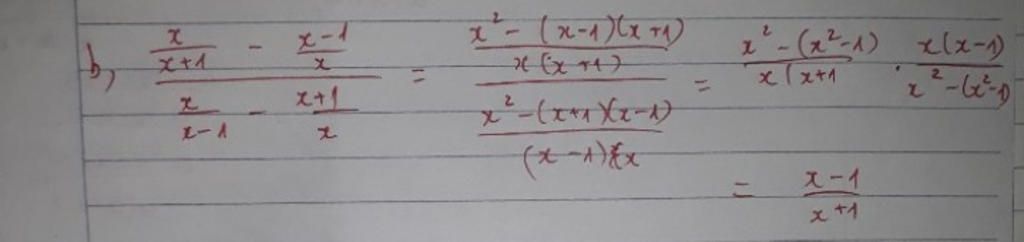 b, (x/(x+1) - (x-1)/x) / (x/(x-1) - (x+1)/x) = ((x² - (x-1)(x+1))/(x(x+1))) / ((x² - (x+1)(x-1))/((x-1)x)) = (x² - (x²-1))/(x(x+1) · (x(x-1))/(x² - (x²-1))
= (x-1)/(x+1)